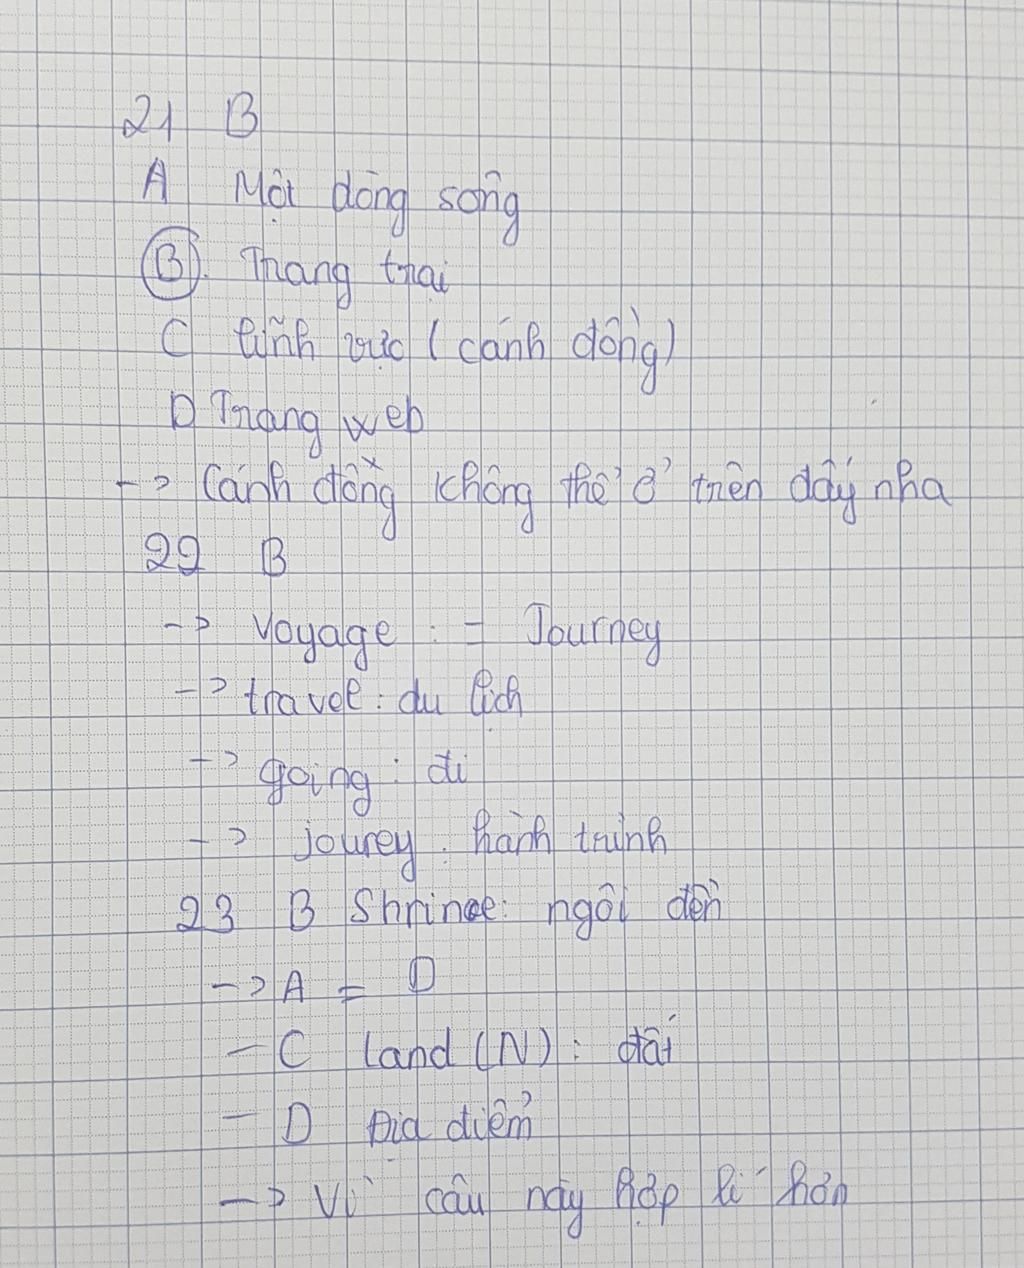 21 B
A Một dòng sông
B. Trang trại
C lĩnh vực (cánh đồng)
D Trang web
-> Cánh đồng không thể ở trên dãy nha
22 B
-> Voyage : = Journey
-> travel : du lịch
-> going : đi
-> jourey : hành trình
23 B Shrinee: ngôi đền
-> A = D
- C Land (N) : đất
- D Địa điểm
-> Vì câu này hợp lí hơn